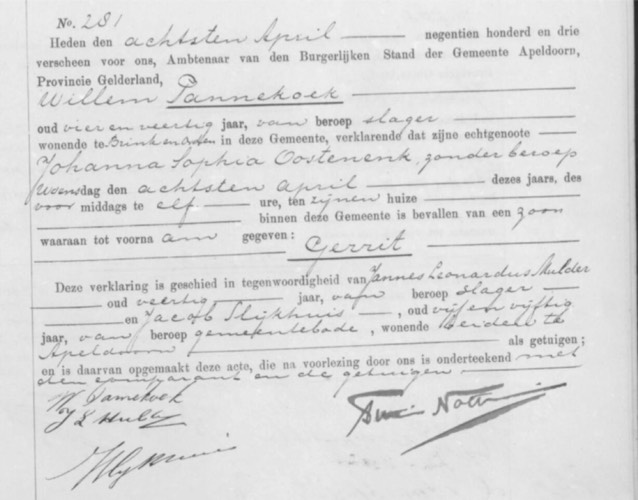 No. 281
Heden den achtsten April negentien honderd en drie
verscheen voor ons, Ambtenaar van den Burgerlijken Stand der Gemeente Apeldoorn,
Provincie Gelderland,
Willem Pannekoek
oud vier en veertig jaar, van beroep slager
wonende te in deze Gemeente, verklarende dat zijne echtgenoote
Johanna Sophia Oostenenk, zonder beroep
Woensdag den achtsten April dezes jaars, des
voor middags te elf ure, ten zijnen huize
binnen deze Gemeente is bevallen van een zoon
waaraan tot voorna am gegeven:
Gerrit
Deze verklaring is geschied in tegenwoordigheid van Jannes Leonardus Mulder
oud veertig jaar, van beroep slager
en Jacob Slijkhuis, oud vijf en vijftig
jaar, van beroep gemeentebode, wonende beiden te
Apeldoorn als getuigen;
en is daarvan opgemaakt deze acte, die na voorlezing door ons is onderteekend met
den comparant en de getuigen
W Pannekoek